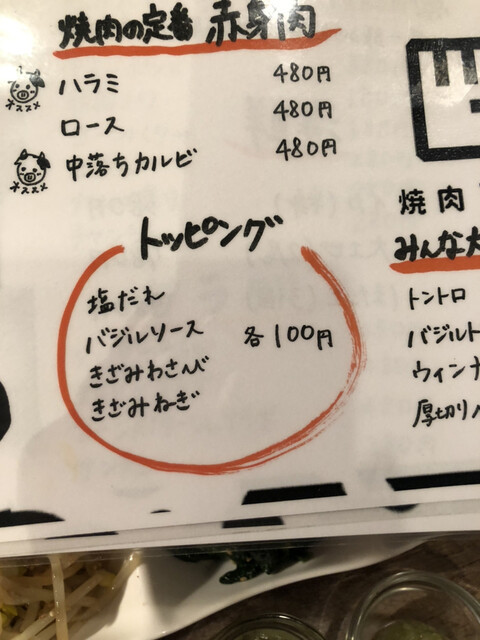 焼肉の定番 赤身肉
オススメ ハラミ 480円
ロース 480円
オススメ 中落ちカルビ 480円
トッピング
塩だれ
バジルソース 各100円
きざみわさび
きざみねぎ
焼肉
みんな大
トントロ
バジルト
ウィンナ
厚切り